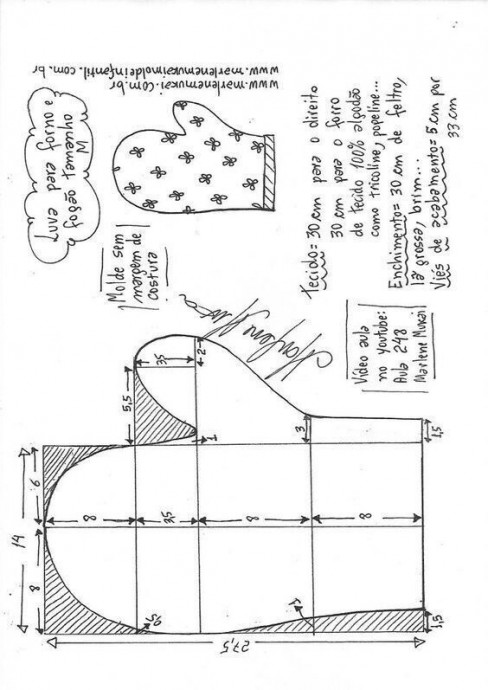 Luva para forno e
fogão tamanho
M
www.marlenemukai.com.br
www.marlenemukaimoldeinfantil.com.br
Molde sem
margem de
costura
Tecido= 30 cm para o direito
30 cm para o forro
de tecido 100% algodão
como tricoline, popeline...
Enchimento= 30 cm de feltro,
lã grossa, brim...
Viés de acabamento= 5 cm por
33 cm
Vídeo aula
no youtube:
Aula 248
Marlene Mukai
3,5
2
5,5
1
3
1,5
6
14
8
8
3,5
8
8
1
1,5
27,5